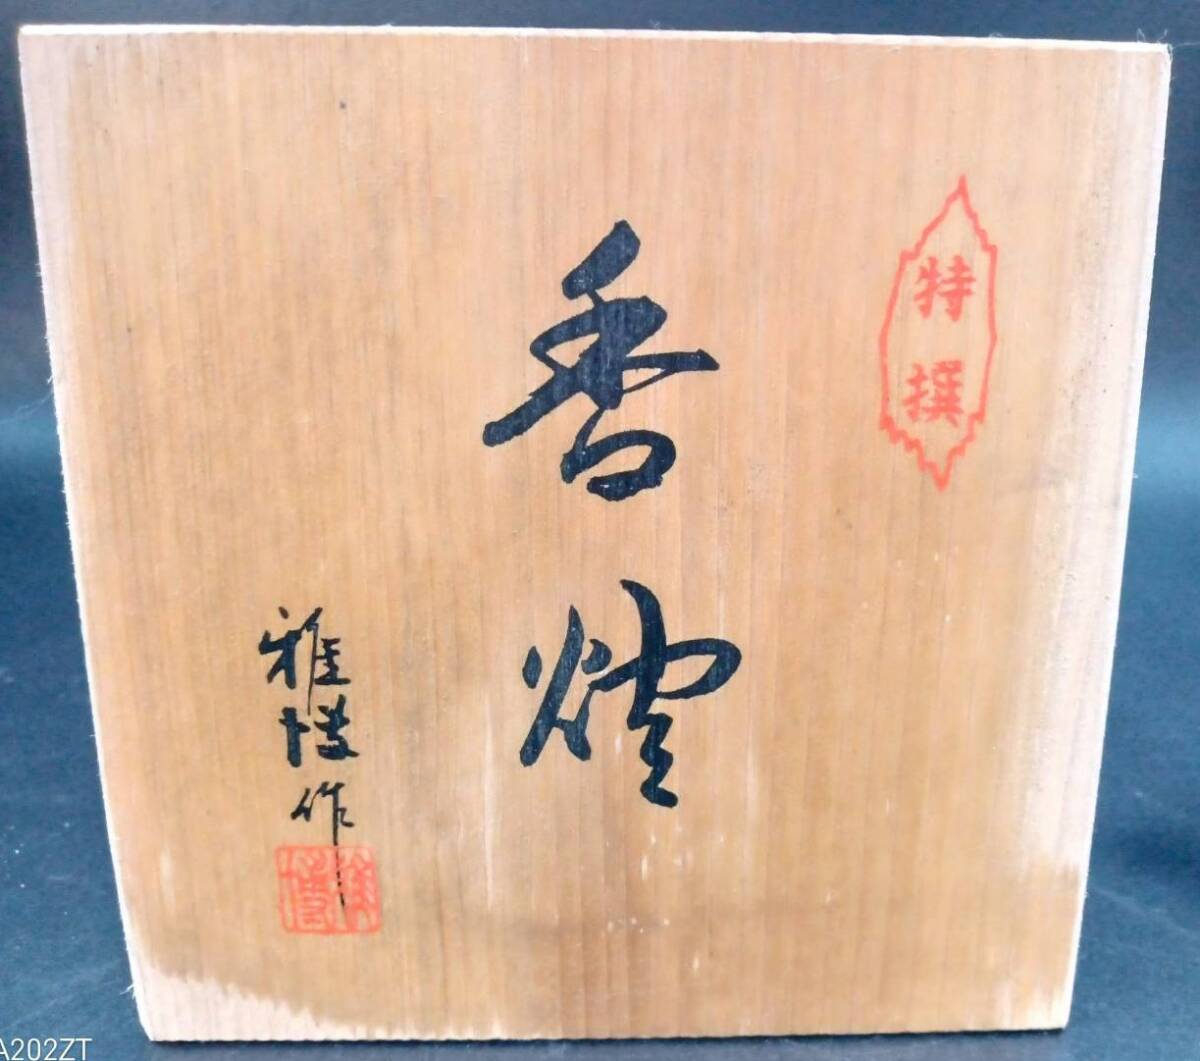 特撰
香炉
雅博作
A202ZT